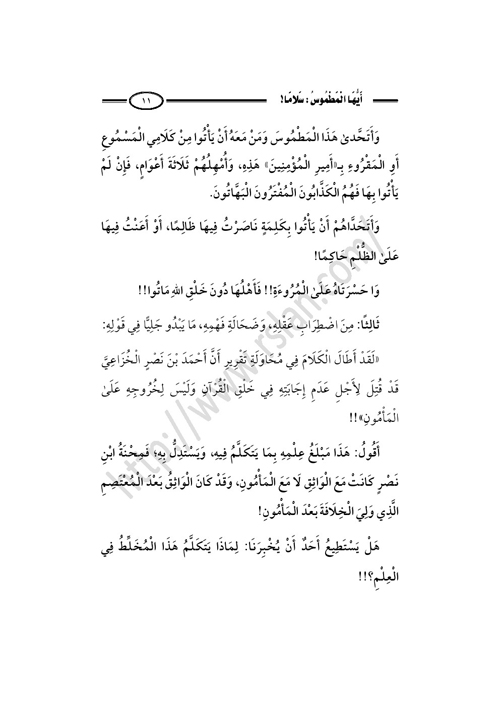 أَيُّهَا الْمَطْمُوسُ: سَلَامًا!
١١
وَأَتَحَدَّىٰ هَذَا الْمَطْمُوسَ وَمَنْ مَعَهُ أَنْ يَأْتُوا مِنْ كَلَامِي الْمَسْمُوعِ
أَوِ الْمَقْرُوءِ بِـ«أَمِيرِ الْمُؤْمِنِينَ» هَذِهِ، وَأُمْهِلُهُمْ ثَلَاثَةَ أَعْوَامٍ، فَإِنْ لَمْ
يَأْتُوا بِهَا فَهُمُ الْكَذَّابُونَ الْمُفْتَرُونَ الْبَهَّاتُونَ.
وَأَتَحَدَّاهُمْ أَنْ يَأْتُوا بِكَلِمَةٍ نَاصَرْتُ فِيهَا ظَالِمًا، أَوْ أَعَنْتُ فِيهَا
عَلَىٰ الظُّلْمِ حَاكِمًا!
وَا حَسْرَتَاهُ عَلَىٰ الْمُرُوءَةِ!! فَأَهْلُهَا دُونَ خَلْقِ اللهِ مَاتُوا!!
ثَالِثًا: مِنَ اضْطِرَابِ عَقْلِهِ، وَضَحَالَةِ فَهْمِهِ، مَا يَبْدُو جَلِيًّا فِي قَوْلِهِ:
«لَقَدْ أَطَالَ الْكَلَامَ فِي مُحَاوَلَةِ تَقْرِيرِ أَنَّ أَحْمَدَ بْنَ نَصْرٍ الْخُزَاعِيَّ
قَدْ قُتِلَ لِأَجْلِ عَدَمِ إِجَابَتِهِ فِي خَلْقِ الْقُرْآنِ وَلَيْسَ لِخُرُوجِهِ عَلَىٰ
الْمَأْمُونِ»!!
أَقُولُ: هَذَا مَبْلَغُ عِلْمِهِ بِمَا يَتَكَلَّمُ فِيهِ، وَيَسْتَدِلُّ بِهِ؛ فَمِحْنَةُ ابْنِ
نَصْرٍ كَانَتْ مَعَ الْوَاثِقِ لَا مَعَ الْمَأْمُونِ، وَقَدْ كَانَ الْوَاثِقُ بَعْدَ الْمُعْتَصِمِ
الَّذِي وَلِيَ الْخِلَافَةَ بَعْدَ الْمَأْمُونِ!
هَلْ يَسْتَطِيعُ أَحَدٌ أَنْ يُخْبِرَنَا: لِمَاذَا يَتَكَلَّمُ هَذَا الْمُخَلِّطُ فِي
الْعِلْمِ؟!!
http://www.rslan.com/